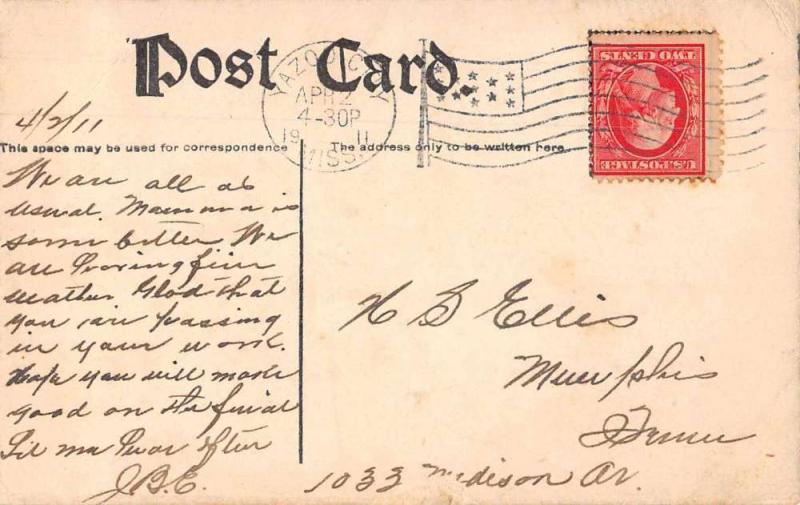 Post Card.
YAZOO CITY
APR 2
4-30P
19 11
MISS.
TWO CENTS
U.S. POSTAGE
4/2/11
This space may be used for correspondence
The address only to be written here.
We are all as
usual. Mamma is
some better. We
are having fine
weather. Glad that
you are passing
in your work.
Hope you will make
good on the final
Let me hear often
J.B.E.
H B Ellis
Memphis
Tenn
1033 Madison Av.